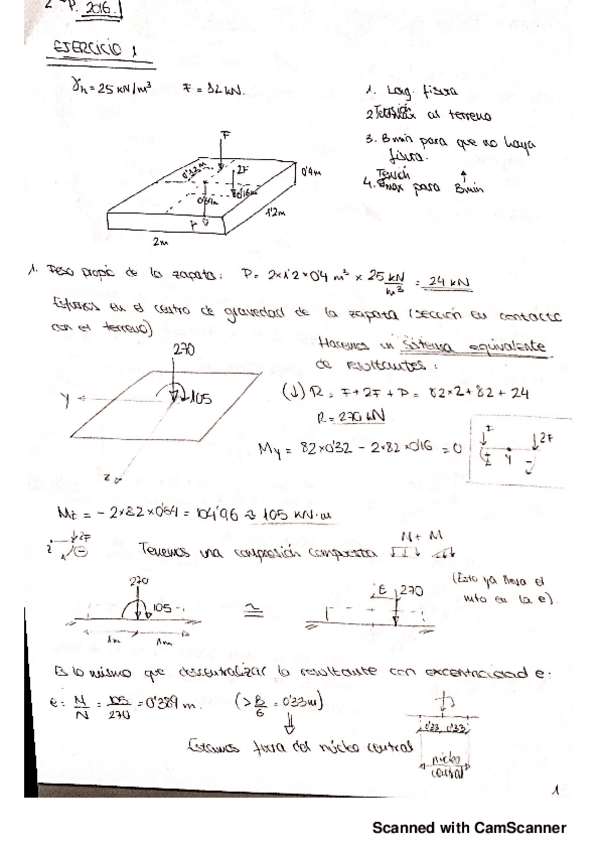 2º P. 2016.
EJERCICIO 1
γh = 25 kN/m³ F = 82 kN.
1. Long. fisura
2. Tensión al terreno
3. B min para que no haya
fisura.
4. σmax para Bmin
F
0'32m
2F
0'16m
0'64m
P
0'4m
1'2m
2m
1. Peso propio de la zapata: P = 2×1'2×0'4 m³ × 25 kN/m³ = 24 kN
Esfuerzos en el centro de gravedad de la zapata (sección en contacto
con el terreno)
Hacemos un sistema equivalente
de resultantes:
270
105
Y
z
(↓) R = F + 2F + P = 82×2 + 82 + 24
R = 270 kN
My = 82×0'32 - 2×82×0'16 = 0
F
2F
Y
Mz = -2×82×0'64 = 104'96 ≈ 105 kN·m
2F
Tenemos una compresión compuesta
N + M
270
105
1m 1m
≅
E 270
(Esto ya lleva el
mto en la e)
Es lo mismo que descentralizar la resultante con excentricidad e:
e = M/N = 105/270 = 0'389 m. (> B/6 = 0'33m)
Estamos fuera del núcleo central
0'33 0'33
núcleo
central
1
Scanned with CamScanner